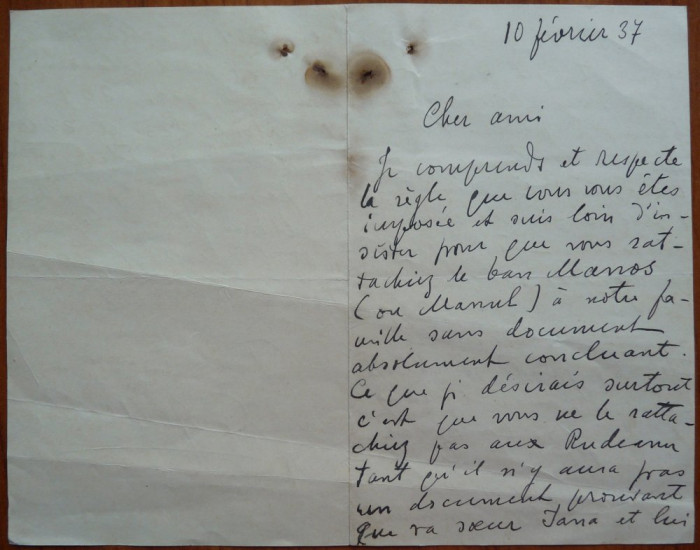 10 février 37
Cher ami
Je comprends et respecte
la règle que vous vous êtes
imposée et suis loin d'in-
sister pour que vous rat-
tachiez le ban Manos
(ou Manul) à notre fa-
mille sans document
absolument concluant.
Ce que je désirais surtout
c'est que vous ne le ratta-
chiez pas aux Rudeanu
tant qu'il n'y aura pas
un document prouvant
que sa sœur Jana et lui